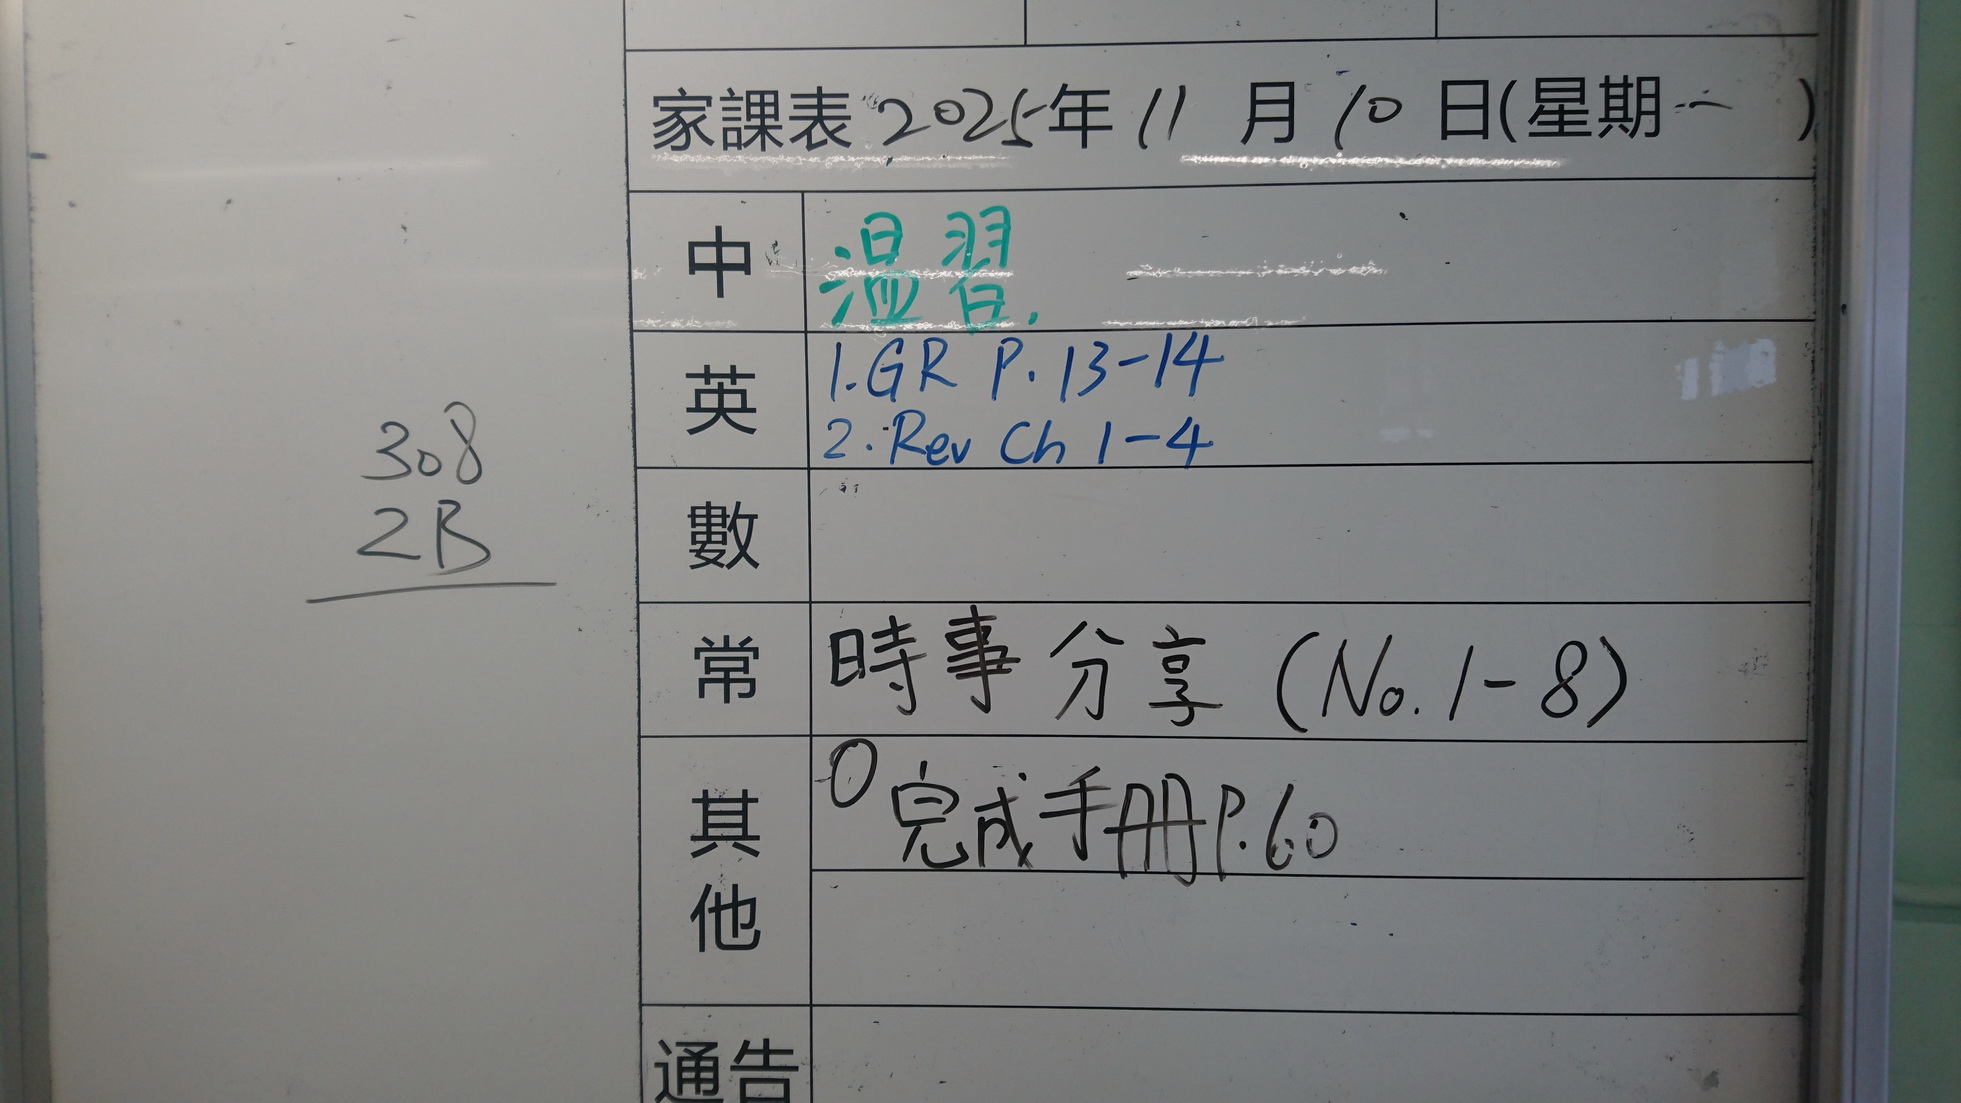 家課表 2025年 11 月 10 日(星期一 )
中 温習.
英 1. GR P. 13-14
2. Rev Ch 1-4
308
2B
數
常 時事分享 (No. 1-8)
其他 0 完成手册 P.60
通告